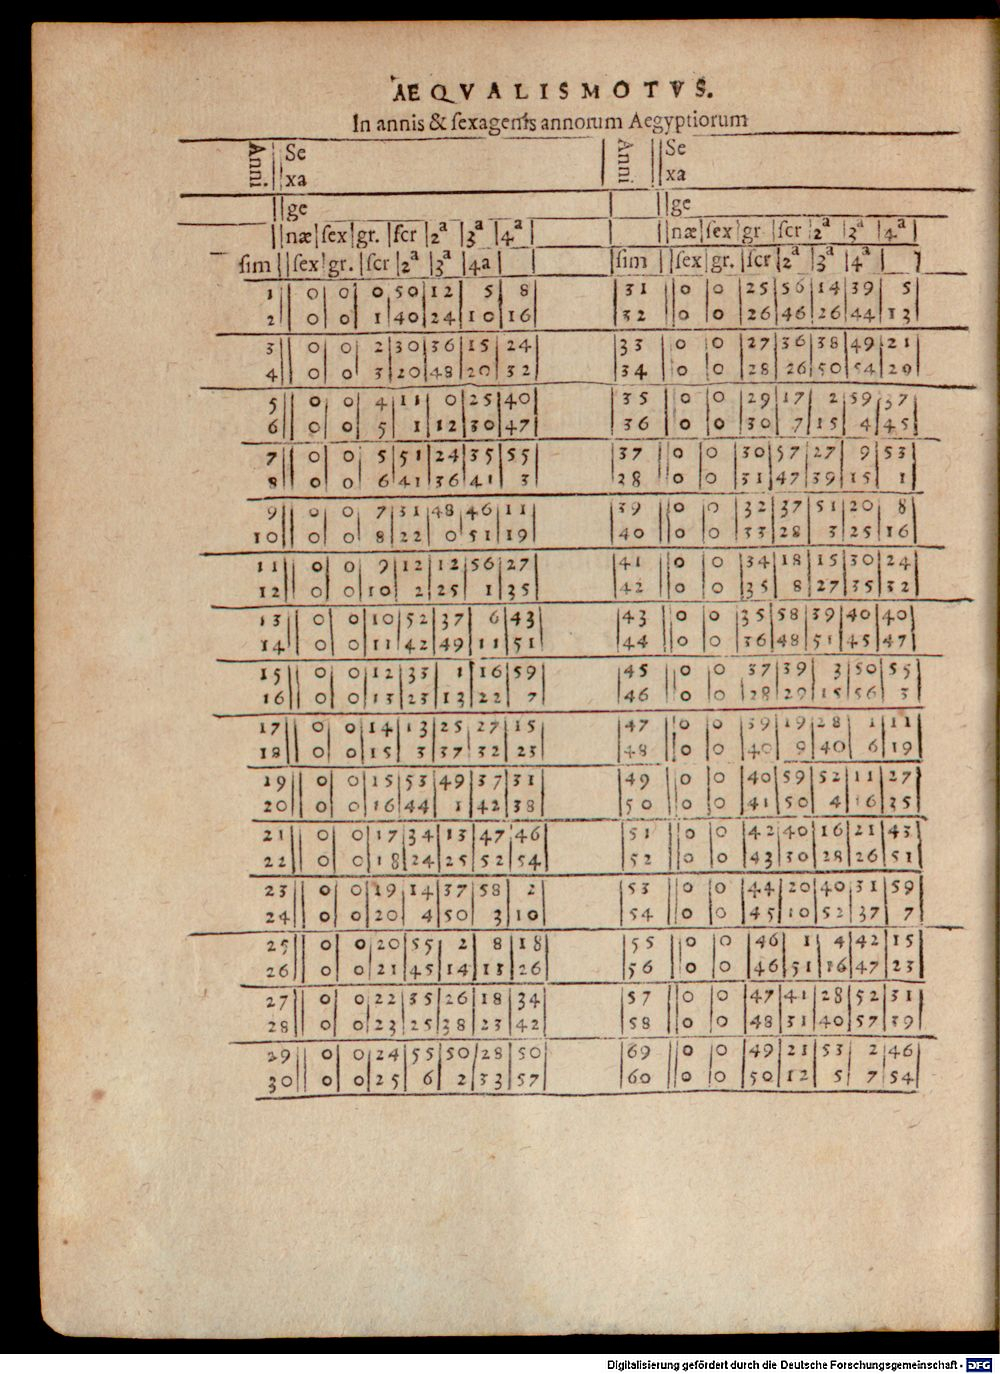 AEQVALIS MOTVS.
In annis & sexagenis annorum Aegyptiorum
Anni. Se Anni Se
xa xa
ge ge
næ sex gr. scr 2ª 3ª 4ª næ sex gr scr 2ª 3ª 4ª
sim sex gr. scr 2ª 3ª 4a sim sex gr. scr 2ª 3ª 4ª
1 0 0 0 50 12 5 8 31 0 0 25 56 14 39 5
2 0 0 1 40 24 10 16 32 0 0 26 46 26 44 13
3 0 0 2 30 36 15 24 33 0 0 27 36 38 49 21
4 0 0 3 20 48 20 32 34 0 0 28 26 50 54 29
5 0 0 4 11 0 25 40 35 0 0 29 17 2 59 37
6 0 0 5 1 12 30 47 36 0 0 30 7 15 4 45
7 0 0 5 51 24 35 55 37 0 0 30 57 27 9 53
8 0 0 6 41 36 41 3 28 0 0 31 47 39 15 1
9 0 0 7 31 48 46 11 39 0 0 32 37 51 20 8
10 0 0 8 22 0 51 19 40 0 0 33 28 3 25 16
11 0 0 9 12 12 56 27 41 0 0 34 18 15 30 24
12 0 0 10 2 25 1 35 42 0 0 35 8 27 35 32
13 0 0 10 52 37 6 43 43 0 0 35 58 39 40 40
14 0 0 11 42 49 11 51 44 0 0 36 48 51 45 47
15 0 0 12 33 1 16 59 45 0 0 37 39 3 50 55
16 0 0 13 23 13 22 7 46 0 0 28 29 15 56 3
17 0 0 14 13 25 27 15 47 0 0 39 19 28 1 11
18 0 0 15 3 37 32 23 48 0 0 40 9 40 6 19
19 0 0 15 53 49 37 31 49 0 0 40 59 52 11 27
20 0 0 16 44 1 42 38 50 0 0 41 50 4 16 35
21 0 0 17 34 13 47 46 51 0 0 42 40 16 21 43
22 0 0 18 24 25 52 54 52 0 0 43 30 28 26 51
23 0 0 19 14 37 58 2 53 0 0 44 20 40 31 59
24 0 0 20 4 50 3 10 54 0 0 45 10 52 37 7
25 0 0 20 55 2 8 18 55 0 0 46 1 4 42 15
26 0 0 21 45 14 13 26 56 0 0 46 51 16 47 23
27 0 0 22 35 26 18 34 57 0 0 47 41 28 52 31
28 0 0 23 25 38 23 42 58 0 0 48 31 40 57 39
29 0 0 24 55 50 28 50 69 0 0 49 21 53 2 46
30 0 0 25 6 2 33 57 60 0 0 50 12 5 7 54
Digitalisierung gefördert durch die Deutsche Forschungsgemeinschaft - DFG